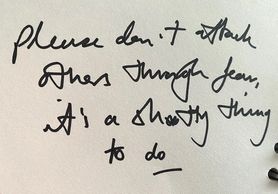 please don't attack
others through fear,
it's a shotty thing
to do